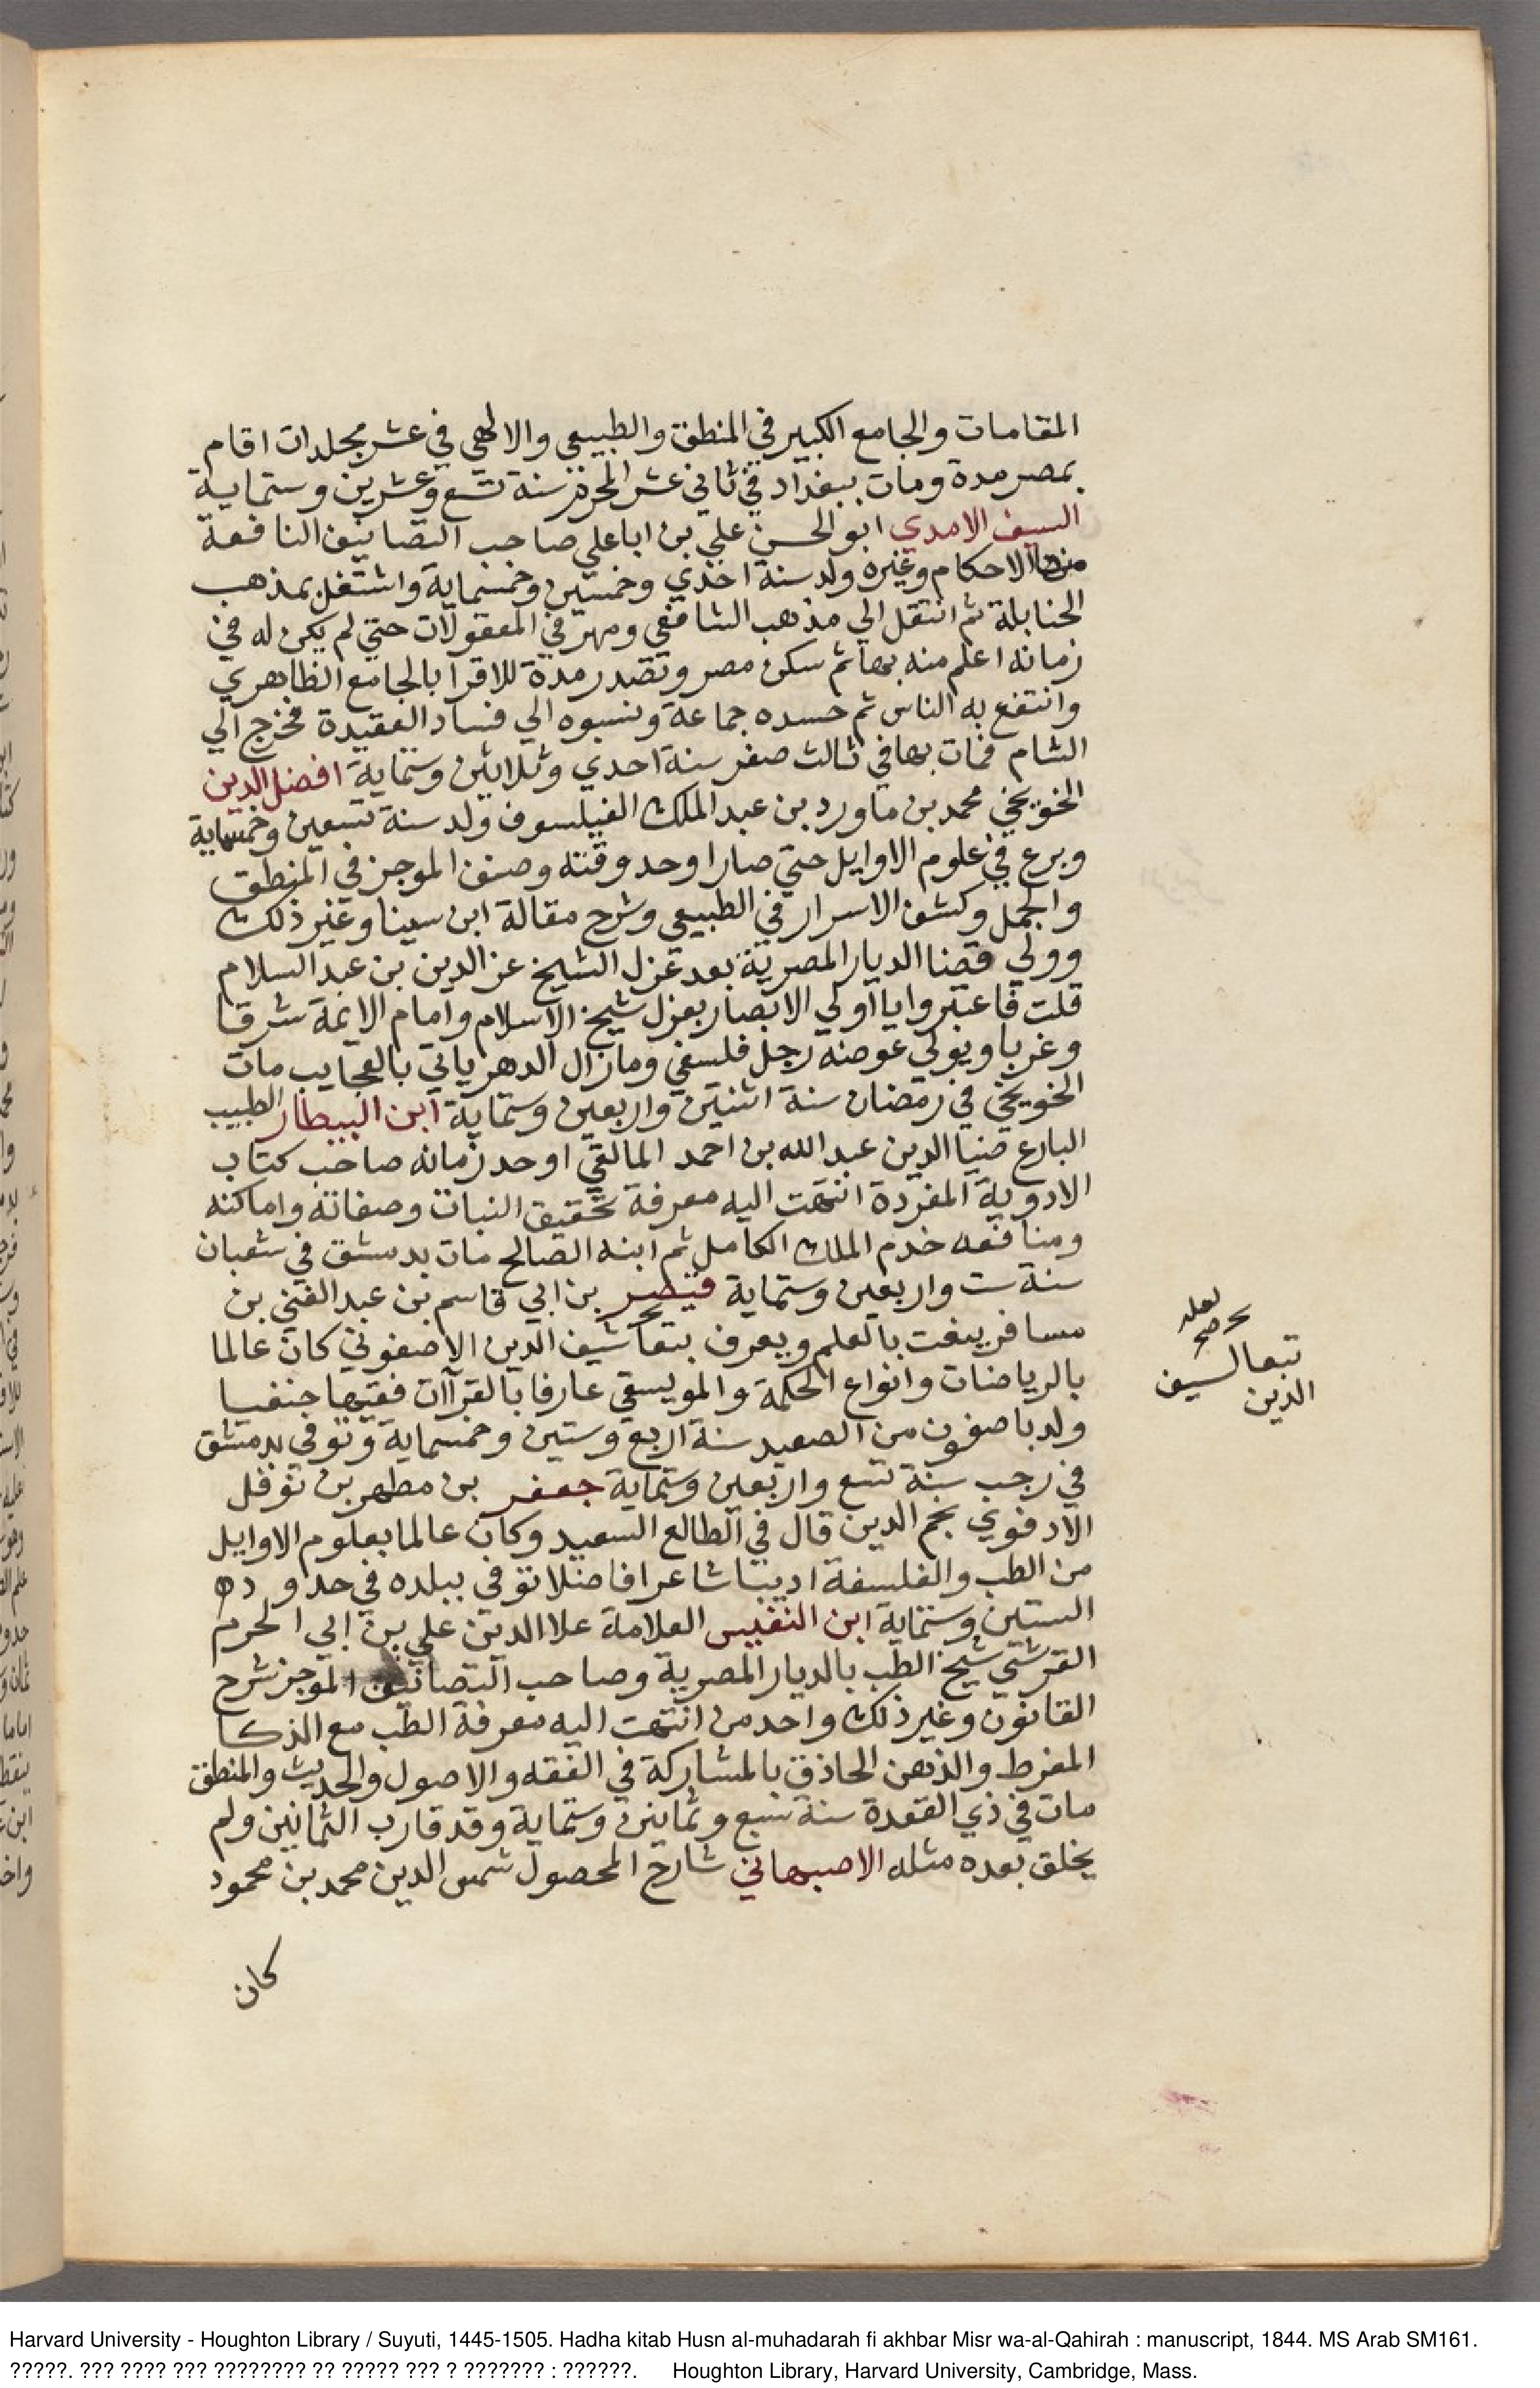 المقامات والجامع الكبير في المنطق والطبيعي والالهي في عشر مجلدات اقام
بمصر مدة ومات ببغداد في ثاني عشر المحرم سنة تسع وعشرين وستماية
السيف الامدي ابو الحسن علي بن اباعلي صاحب التصانيف النافعة
منها الاحكام وغيره ولد سنة احدي وخمسين وخمسماية واشتغل بمذهب
الحنابلة ثم انتقل الي مذهب الشافعي ومهر في المعقولات حتي لم يكن له في
زمانه اعلم منه بها ثم سكن مصر وتصدر مدة للاقرا بالجامع الظاهري
وانتفع به الناس ثم حسده جماعة ونسبوه الي فساد العقيدة فخرج الي
الشام فمات بها في ثالث صفر سنة احدي وثلاثين وستماية افضل الدين
الخويخي محمد بن ماورد بن عبد الملك الفيلسوف ولد سنة تسعين وخمسماية
وبرع في علوم الاوايل حتي صار اوحد وقته وصنف الموجز في المنطق
والجمل وكشف الاسرار في الطبيعي وشرح مقالة ابن سينا وغير ذلك
وولي قضا الديار المصرية بعد عزل الشيخ عز الدين بن عبد السلام
قلت فاعتبروا يا اولي الابصار بعزل شيخ الاسلام وامام الايمة شرقا
وغربا ويولي عوضه رجل فلسفي وما زال الدهر ياتي بالعجايب مات
الخويخي في رمضان سنة اثنتين واربعين وستماية ابن البيطار الطبيب
البارع ضيا الدين عبد الله بن احمد المالقي اوحد زمانه صاحب كتاب
الادوية المفردة انتهت اليه معرفة تحقيق النبات وصفاته واماكنه
ومنافعه خدم الملك الكامل ثم ابنه الصالح مات بدمشق في شعبان
سنة ست واربعين وستماية قيصر بن ابي قاسم بن عبد الغني بن
مسافر ينعت بالعلم ويعرف بتعاشيف الدين الاصفوني كان عالما
بالرياضات وانواع الحكمة والمويسقي عارفا بالقراآت فقيها حنفيا
ولد باصفون من الصعيد سنة اربع وستين وخمسماية وتوفي بدمشق
في رجب سنة تسع واربعين وستماية جعفر بن مطهر بن نوفل
الادفوي نجم الدين قال في الطالع السعيد وكان عالما بعلوم الاوايل
من الطب والفلسفة اديبا شاعرا فاضلا توفي ببلده في حدود
الستين وستماية ابن النفيس العلامة علا الدين علي بن ابي الحرم
القرشي شيخ الطب بالديار المصرية وصاحب التصانيف الموجز شرح
القانون وغير ذلك واحد من انتهت اليه معرفة الطب مع الذكا
المفرط والذهن الحاذق بالمشاركة في الفقه والاصول والحديث والمنطق
مات في ذي القعدة سنة سبع وثمانين وستماية وقد قارب الثمانين ولم
يخلق بعده مثله الاصبهاني شارح المحصول شمس الدين محمد بن محمود
كان
لعله
تبعا لسيف
الدين
Harvard University - Houghton Library / Suyuti, 1445-1505. Hadha kitab Husn al-muhadarah fi akhbar Misr wa-al-Qahirah : manuscript, 1844. MS Arab SM161.
?????. ??? ???? ??? ???????? ?? ????? ??? ? ??????? : ??????. Houghton Library, Harvard University, Cambridge, Mass.